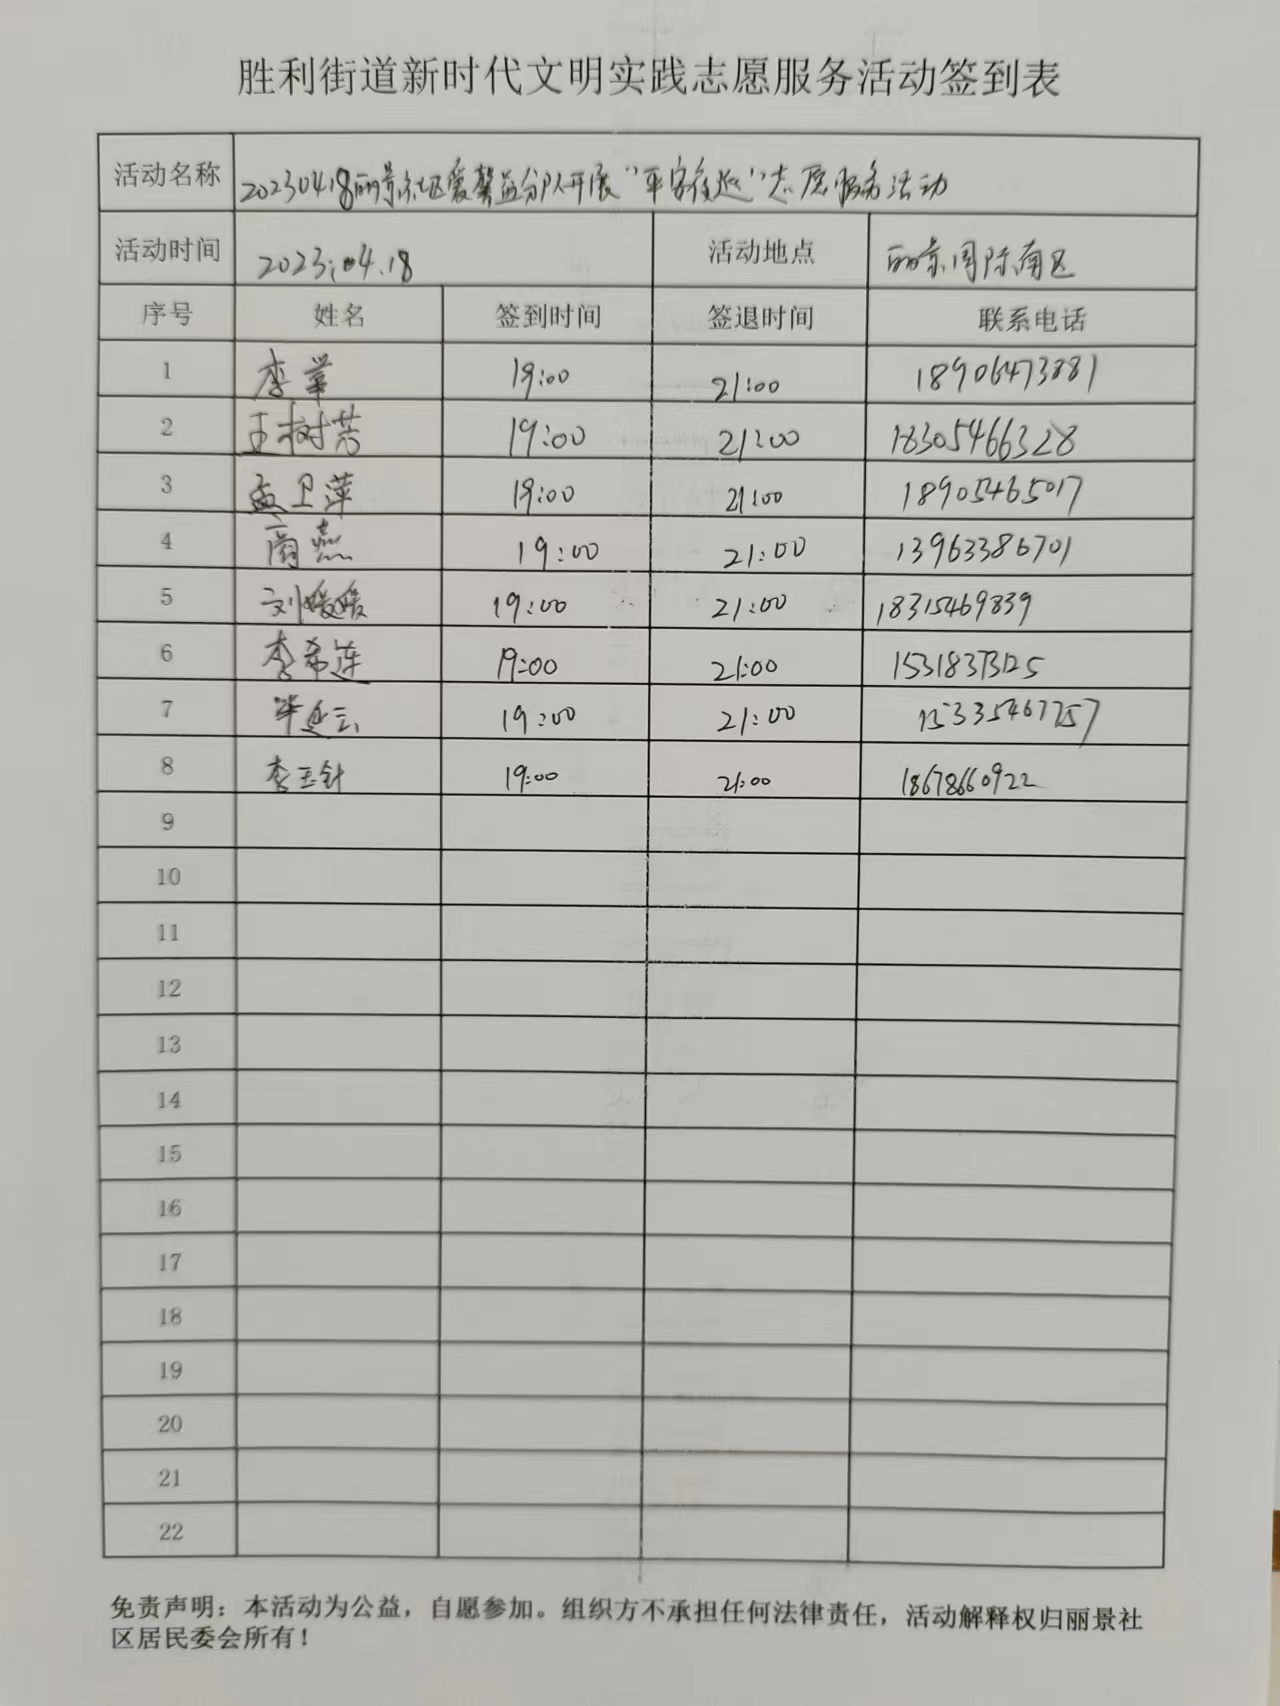 胜利街道新时代文明实践志愿服务活动签到表
活动名称 20230418丽景社区爱馨益分队开展“平安夜巡”志愿服务活动
活动时间 2023.04.18 活动地点 丽景国际南区
序号 姓名 签到时间 签退时间 联系电话
1 李苹 19:00 21:00 18906473881
2 王树芳 19:00 21:00 18305466328
3 孟卫萍 19:00 21:00 18905465017
4 商燕 19:00 21:00 13963386701
5 刘媛媛 19:00 21:00 18315469839
6 李希莲 19:00 21:00 15318373125
7 毕延云 19:00 21:00 15335467757
8 李玉针 19:00 21:00 18678660922
9
10
11
12
13
14
15
16
17
18
19
20
21
22
免责声明：本活动为公益，自愿参加。组织方不承担任何法律责任，活动解释权归丽景社
区居民委会所有！